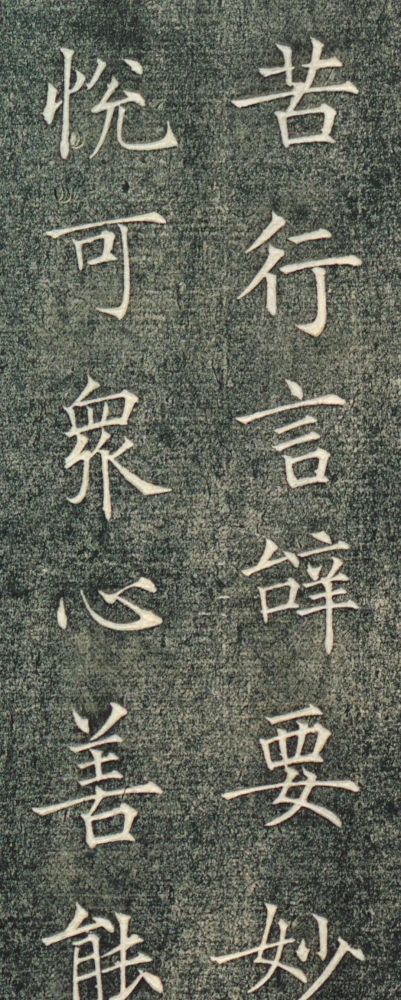 苦行言辝要妙
悅可眾心善能